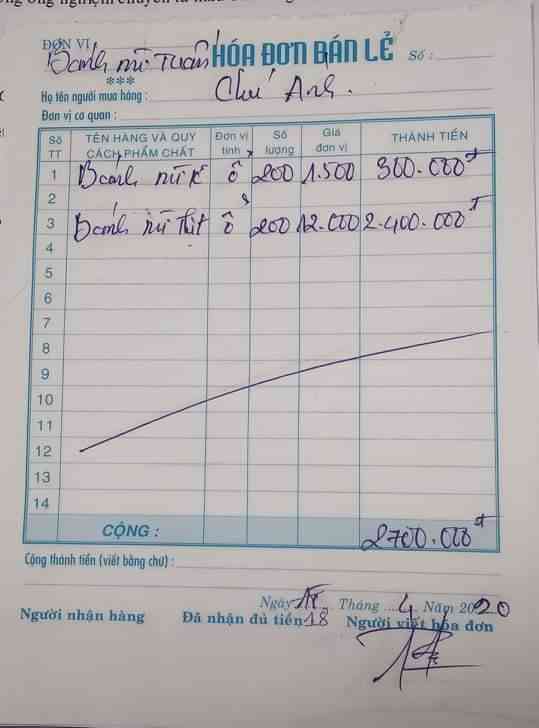 ĐƠN VỊ Bánh mì Tuấn HÓA ĐƠN BÁN LẺ Số :
***
Họ tên người mua hàng : Chú Anh.
Đơn vị cơ quan :
Số TT TÊN HÀNG VÀ QUY CÁCH PHẨM CHẤT Đơn vị tính Số lượng Giá đơn vị THÀNH TIỀN
1 Bánh mì ổ 200 1.500 300.000đ
2
3 Bánh mì thịt ổ 200 12.000 2.400.000đ
4
5
6
7
8
9
10
11
12
13
14
CỘNG : 2700.000đ
Cộng thành tiền (viết bằng chữ) :
Ngày Tháng 4 Năm 2020
18
Người nhận hàng Đã nhận đủ tiền Người viết hóa đơn